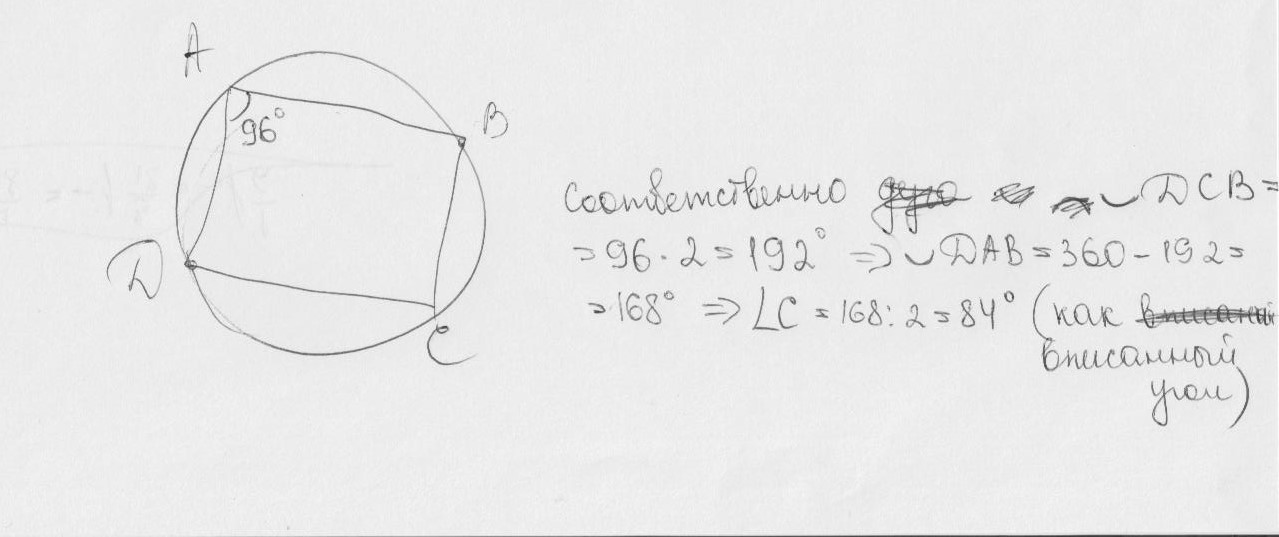 A
96°
B
D
C
Соответственно ◡ DCB =
= 96 · 2 = 192° ⇒ ◡ DAB = 360 - 192 =
= 168° ⇒ ∠C = 168 : 2 = 84° (как
вписанный
угол)